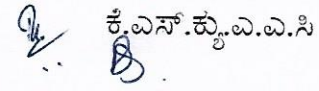 ಕೆ.ಎಸ್.ಕ್ಯು.ಎ.ಎ.ಸಿ